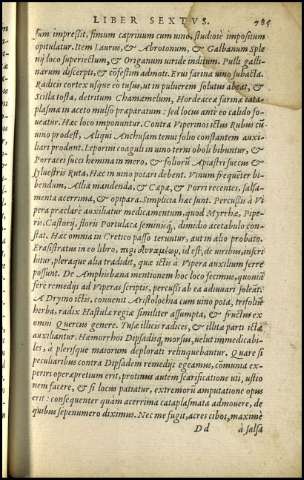 LIBER SEXTVS. 785
sum impressit, fimum caprinum cum vino, studiose impositum
opitulatur. Item Laurus, & Abrotonum, & Galbanum Sple
nij loco superiectum, & Origanum viride inditum. Pulli galli-
narum discerpti, & cōfestim admoti. Erui farina vino subacta.
Radicis cortex usque eo tusus, ut in puluerem solutus abeat, &
Scilla tosta, detritum Chamæmelum, Hordeacea farina cata-
plasma in aceto mulso præparatum : sed locus ante eo calido foue-
atur. Hac loco imponuntur. Contra Viperinos ictus Rubus cū
vino prodest, Aliqui Anchusam tenui folio constantem auxi-
liari produnt. Leporini coaguli in vino terni oboli bibuntur, &
Porracei succi hemina in mero, & foliorū Apiastri succus, &
syluestris Ruta. Hac in vino potari debent. Vinum frequēter bi-
bendum, Allia mandenda, & Cæpa, & Porri recentes, salsa-
menta acerrima, & opipara. Simplicia hæc sunt. Percussis à Vi
pera præclarè auxiliatur medicamentum, quod Myrrha, Pipe-
ris, Castorij, floris Portulacæ seminisq́, dimidio acetabulo con-
stat. Hæc omnia in Cretico passo teruntur, aut in alio probato.
Erasistratus in eo libro, id est, de viribus, inscri
bitur, pleraque alia tradidit, quæ ictis à Vipera auxilium ferre
possunt. De Amphisbæna mentionem hoc loco fecimus, quoniā
ferè remedijs ad Viperas scriptis, percussi ab ea adiuuari solēt.
A Dryino ictis, conuenit Aristolochia cum vino pota, trifoliū
herba, radix Hastulæ regiæ similiter assumpta, & fructus ex
omni Quercus genere. Tusæ illius radices, & illitæ parti ictæ
auxiliantur. Hæmorrhoi Dipsadisq́; morsus, velut immedicabi-
les, à plerisque maiorum deplorati relinquebantur. Quare si
peculiaribus contra Dipsadem remedijs egeamus, cōmunia ex-
periri operæpretium erit, protinus autem scarificatione uti, ustio
nem facere, & si locus patiatur, extremorū amputatione opus
erit : consequenter quàm acerrima cataplasmata admouere, de
quibus sæpenumero diximus. Nec me fugit, acres cibos, maximè
D d à salsa